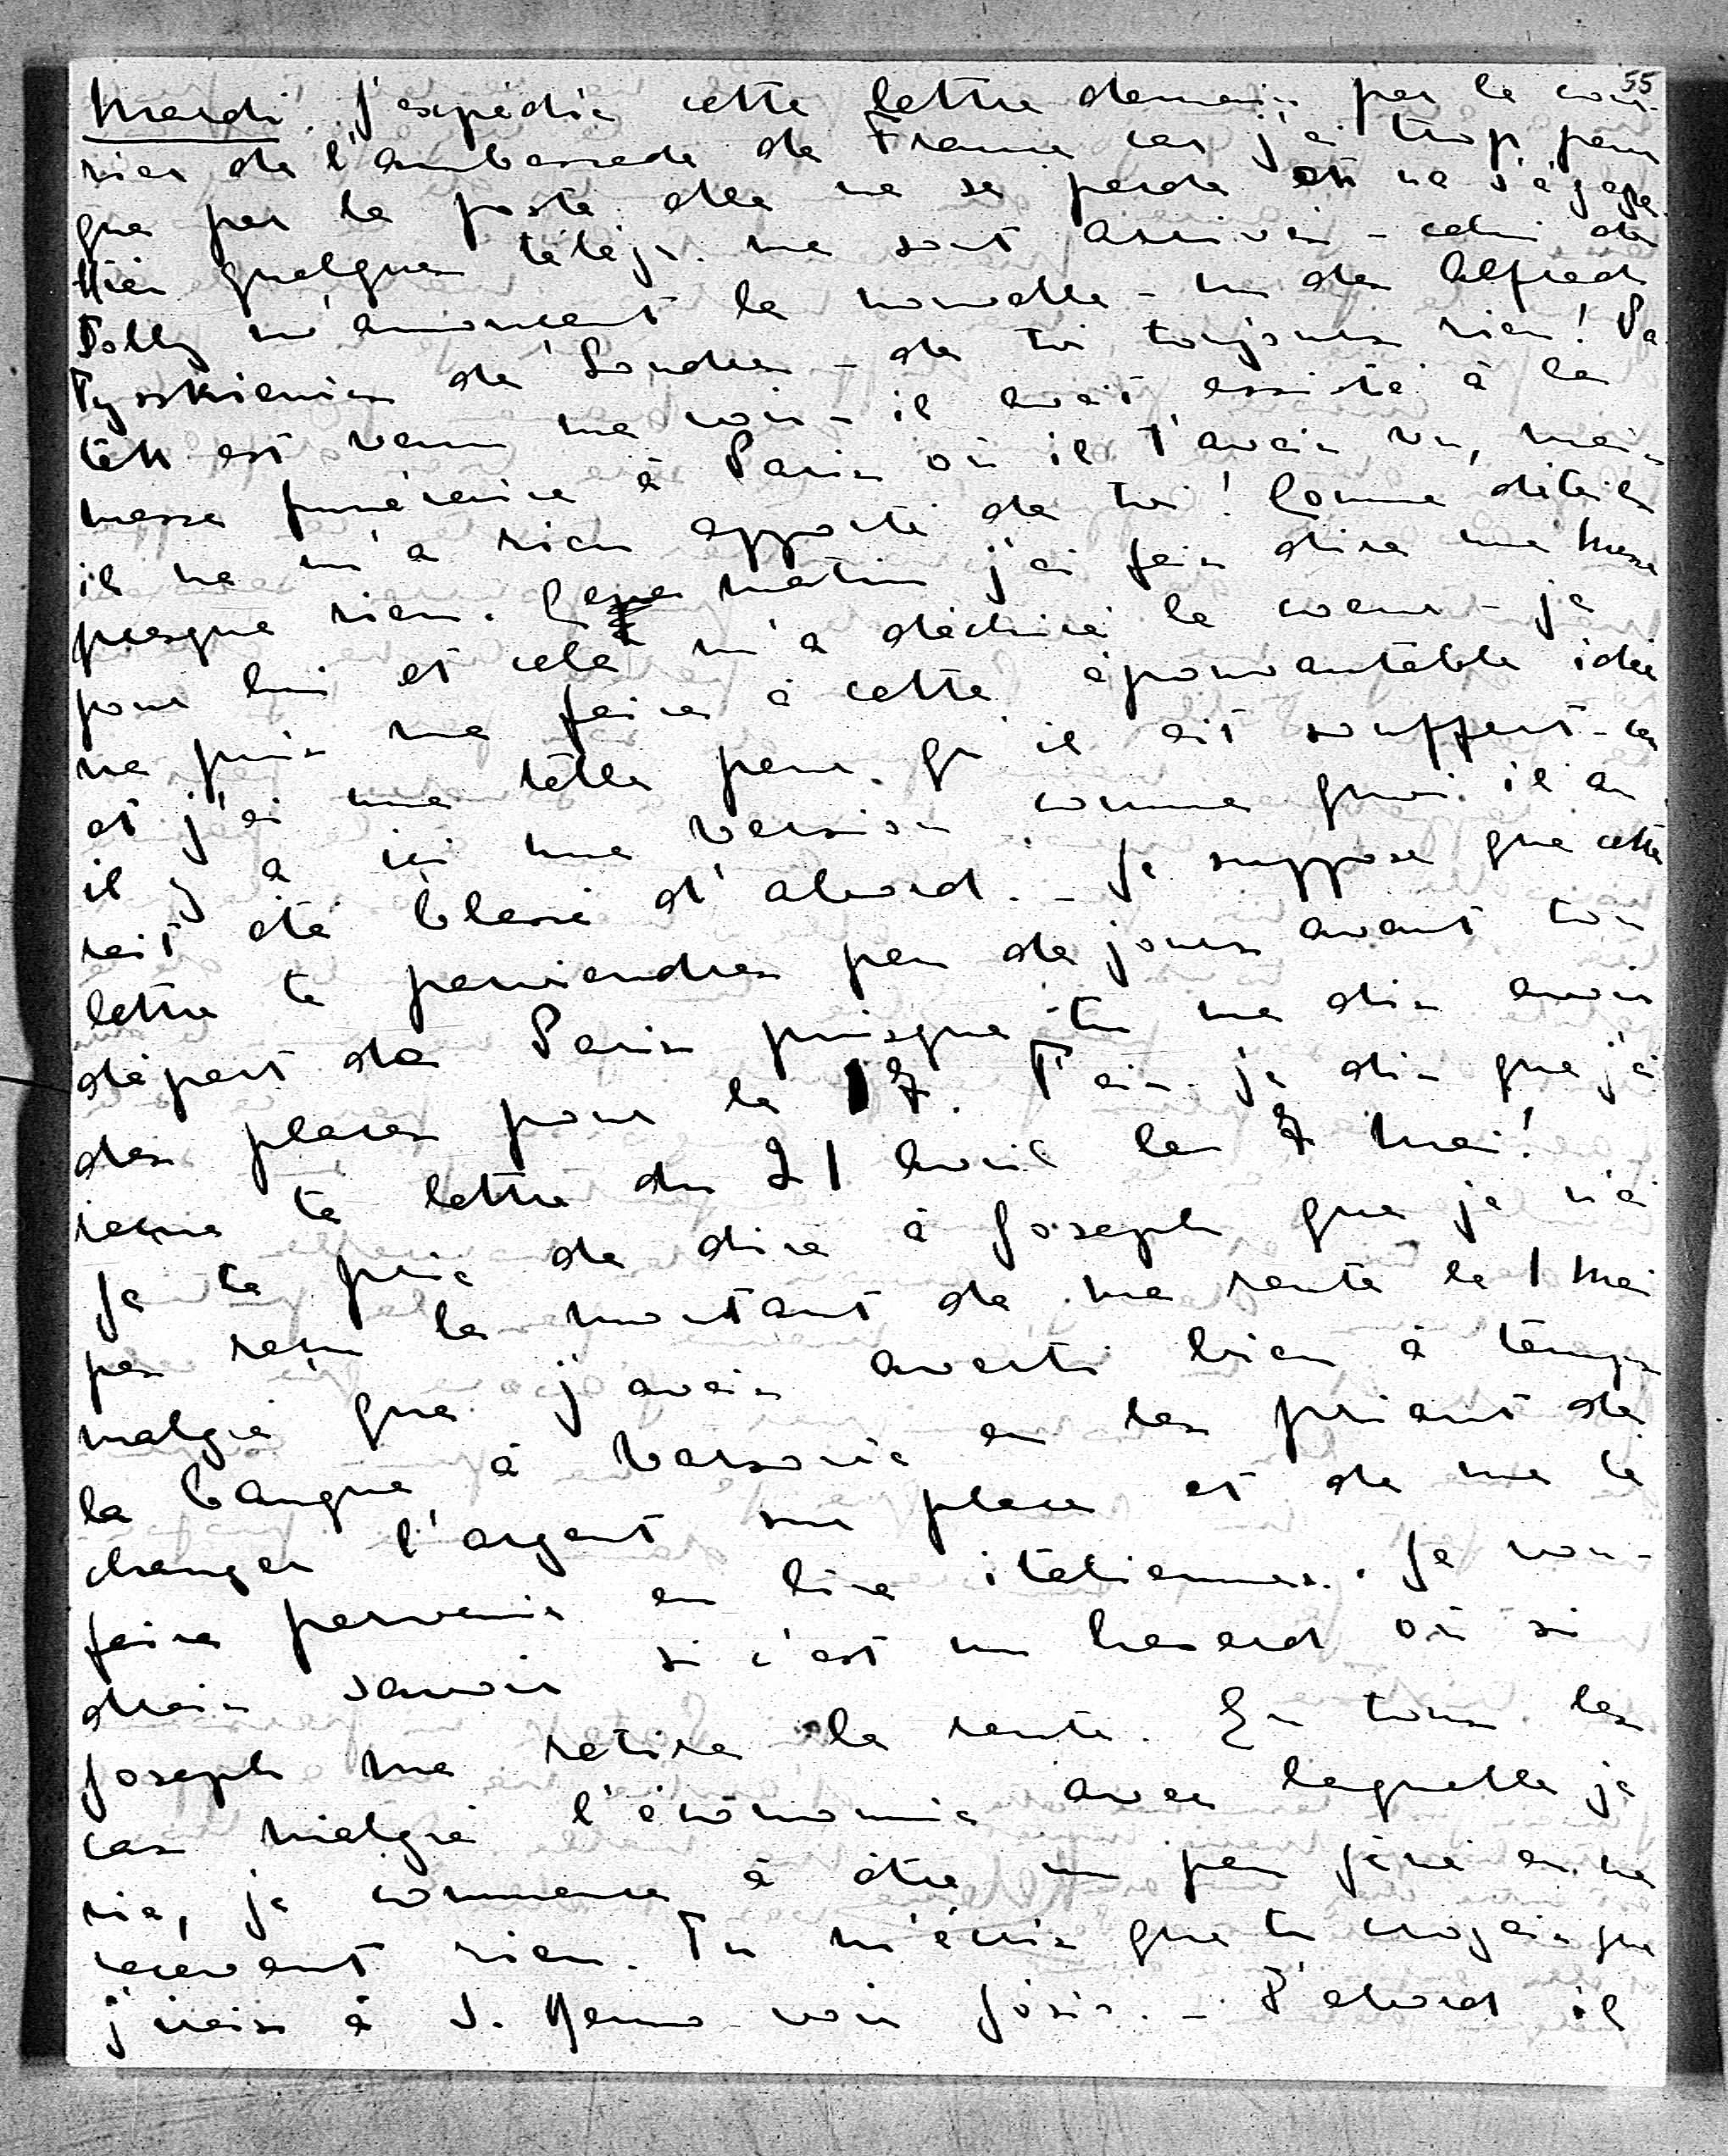 55
Mardi. J'expédie cette lettre demain par le cour-
rier de l'ambassade de France car j'ai trop peur
que par la poste elle ne se perde où ne s'égare.
Hier quelques télégr. me sont arrivés - celui de
Dolly m'annoncent la nouvelle - un des Alfred
Tyszkiewicz de Londres - de toi toujours rien! Pa-
tek est venu me voir - il avait assisté à la
messe funéraire à Paris où il t'avais vu, mais
il ne m'a rien apporté de toi! Comme détails
presque rien. Ce matin j'ai fais dire une Messe
pour lui et cela m'a déchiré le coeur - je
ne puis me faire à cette épouvantable idée
et j'ai une telle peur qu'il ait souffert - car
il y a ici une version comme quoi il au-
rait été blessé d'abord. - Je suppose que cette
lettre te parviendras peu de jours avant ton
départ de Paris puisque tu me dis avoir
des places pour le 17. T'ais-je dis que j'ai
reçue ta lettre du 21 Avril le 7 Mai!
Je te prie de dire à Joseph que je n'ai
pas reçu le montant de ma rente le 1 Mai
malgré que j'avais averti bien à temps
la banque à Varsovie en les priant de
changer l'argent sur place et de me le
faire parvenir en lire italiennes. Je vou-
drais savoir si c'est un hasard où si
Joseph me retire la rente. En tous les
cas malgré l'économie avec laquelle je
vie, je commence à être un peu gêné en ne
recevant rien. Tu m'écris que tu croyais que
j'irais à S. Remo voir Josio. - D'abord il